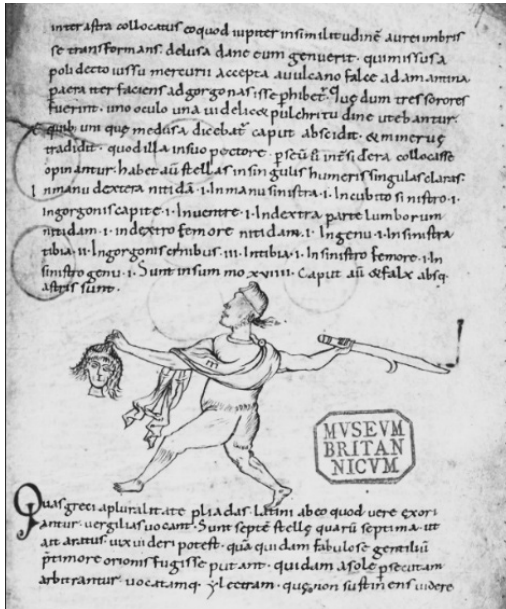 inter astra collocatus eo quod iupiter insimilitudinē aurei imbris
se transformans. delusa dane eum genuerit. qui missus a
polidecto iussu mercurii accepta a uulcano falce adamantina.
paera iter faciens ad gorgonas isse phibet̄. Que dum tres sorores
fuerint. uno oculo una uidelicet pulchritudine utebantur.
Ex quib; unū que medusa dicebat̄ caput abscidit. & mineruę
tradidit. quod illa in suo pectore. pseū ū int̄ sidera collocasse
opinantur. habet aū stellas insingulis humeris singulas claras.
Inmanu dextera nitidā ·i· Inmanu sinistra ·i· Incubito sinistro ·i·
Ingorgonis capite ·i· Inuentre ·i· Indextra parte lumborum
nitidam ·i· indextro femore nitidam ·i· Ingenu ·i· Insinistra
tibia ·ii· Ingorgonis crinibus ·iii· Intibia ·i· Insinistro femore ·i· In
sinistro genu ·i· Sunt insummo xviiii. Caput aū & falx absq
astris sunt.
MVSEVM
BRITAN
NICVM
Quas greci a pluralitate pliadas. latini ab eo quod uere exori
antur. uergilias uocant. Sunt septē stellę quarū septima. ut
ait aratus uix uideri potest. quā quidam fabulose gentiliū
p̄ timore orionis fugisse putant. quidam a sole p̄secutam
arbitrantur uocatamq; ylectram. quę non sustinens uidere